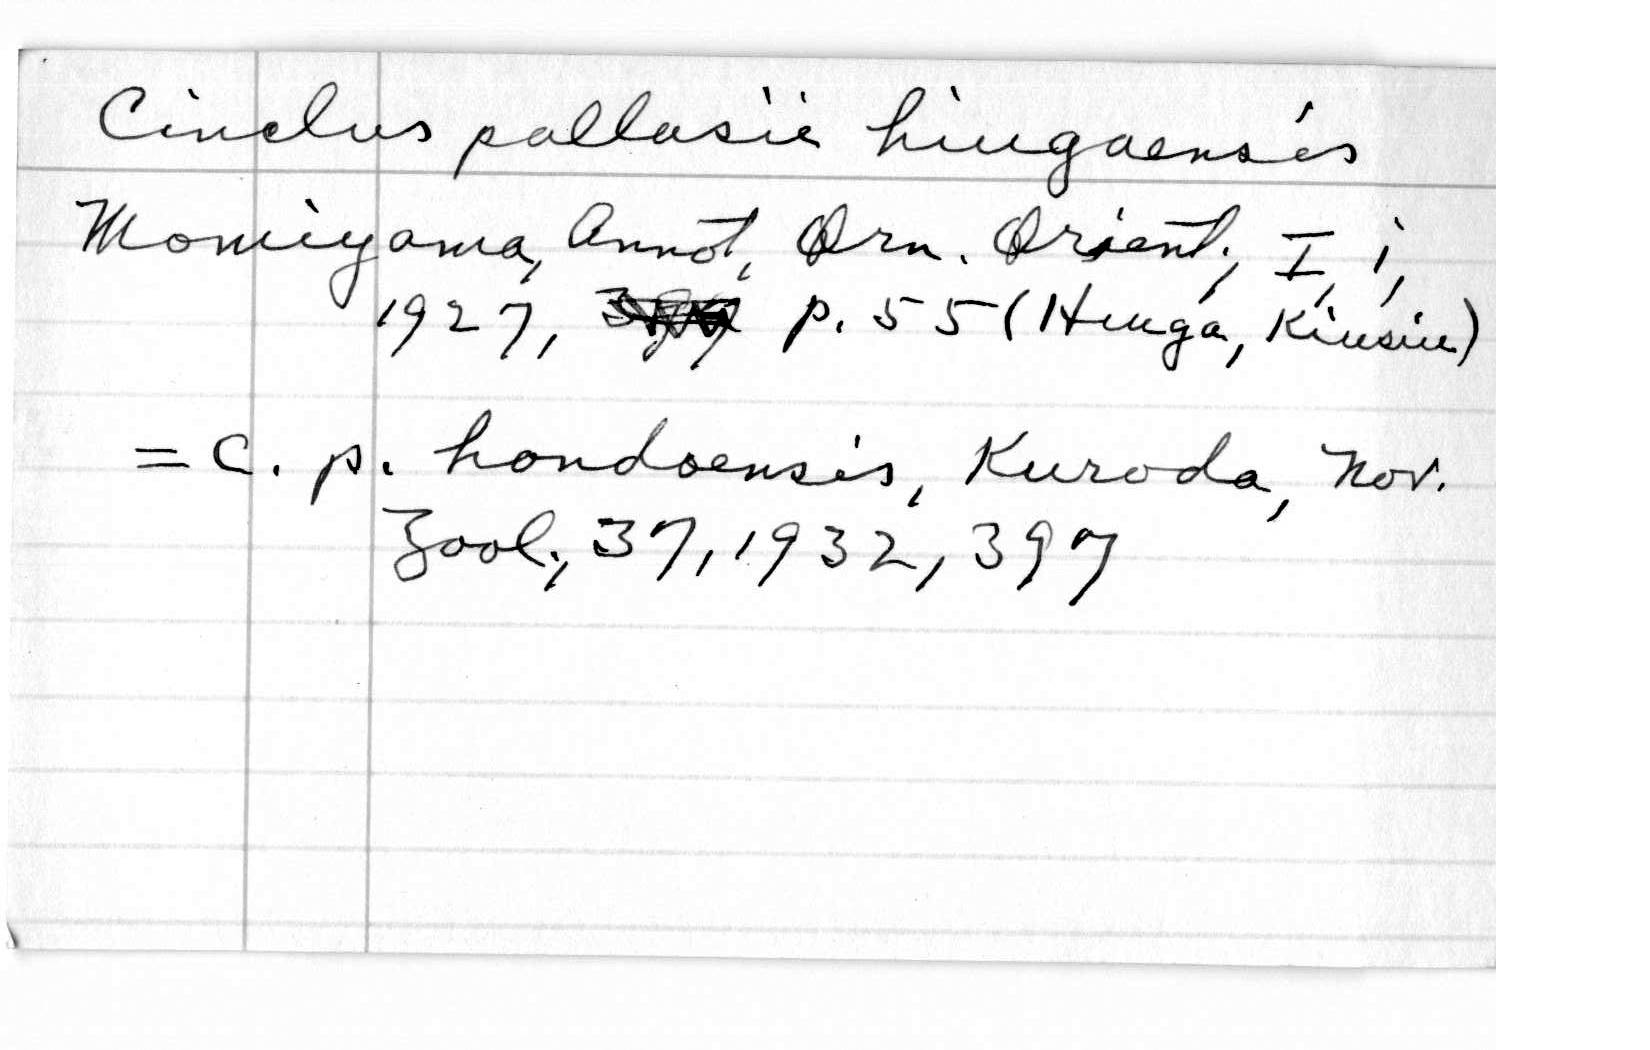 Cinclus pallasii hiugaensis
Momiyama, Annot, Orn. Orient., I, i,
1927, p. 55 (Hiuga, Kiusiu)
= C. p. hondoensis, Kuroda, Nov.
Zool., 37, 1932, 397